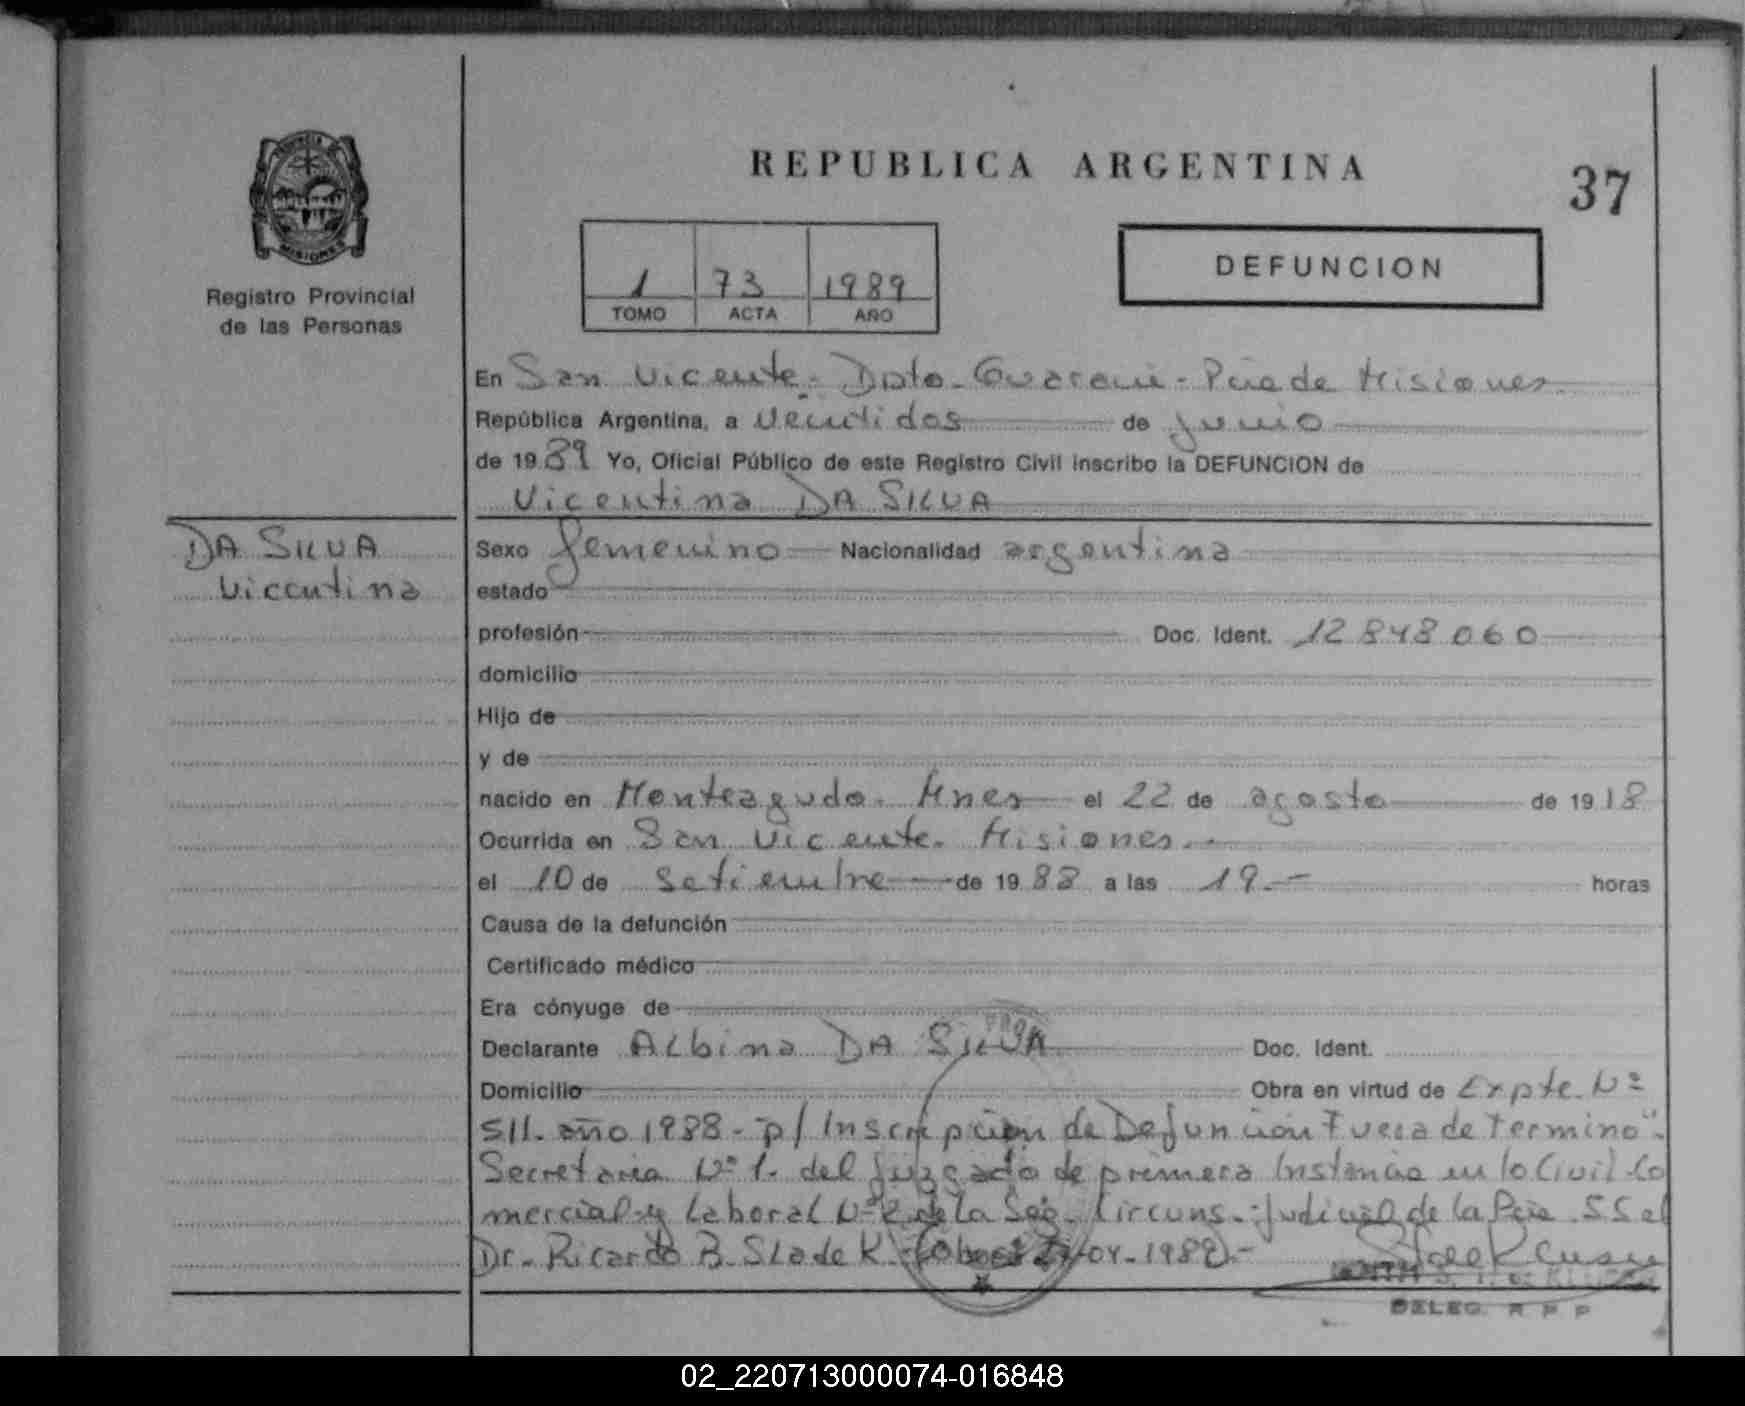 REPUBLICA ARGENTINA
37
PROVINCIA DE
MISIONES
Registro Provincial
de las Personas
1 73 1989
TOMO ACTA AÑO
DEFUNCION
En San Vicente - Dpto - Guarani - Pcia de Misiones
República Argentina, a veintidos de junio
de 1989 Yo, Oficial Público de este Registro Civil inscribo la DEFUNCION de
Vicentina DA SILVA
DA SILVA
Vicentina
Sexo femenino Nacionalidad argentina
estado
profesión Doc. Ident. 12 848 060
domicilio
Hijo de
y de
nacido en Monteagudo. Mnes el 22 de agosto de 1918
Ocurrida en San Vicente. Misiones.-
el 10 de setiembre de 1988 a las 19.- horas
Causa de la defunción
Certificado médico
Era cónyuge de
Declarante Albina DA SILVA Doc. Ident.
Domicilio Obra en virtud de Expte. Nº
511. año 1988 - p/ Inscripcion de Defuncion Fuera de Termino".
Secretaria Nº 1. del Juzgado de primera Instancia en lo Civil-Co
mercial y Laboral Nº 2 de la Seg. Circuns. Judicial de la Pcia. S.S. el
Dr. Ricardo B. Sladek. -04-1989.-
DELEG. R P P
02_220713000074-016848